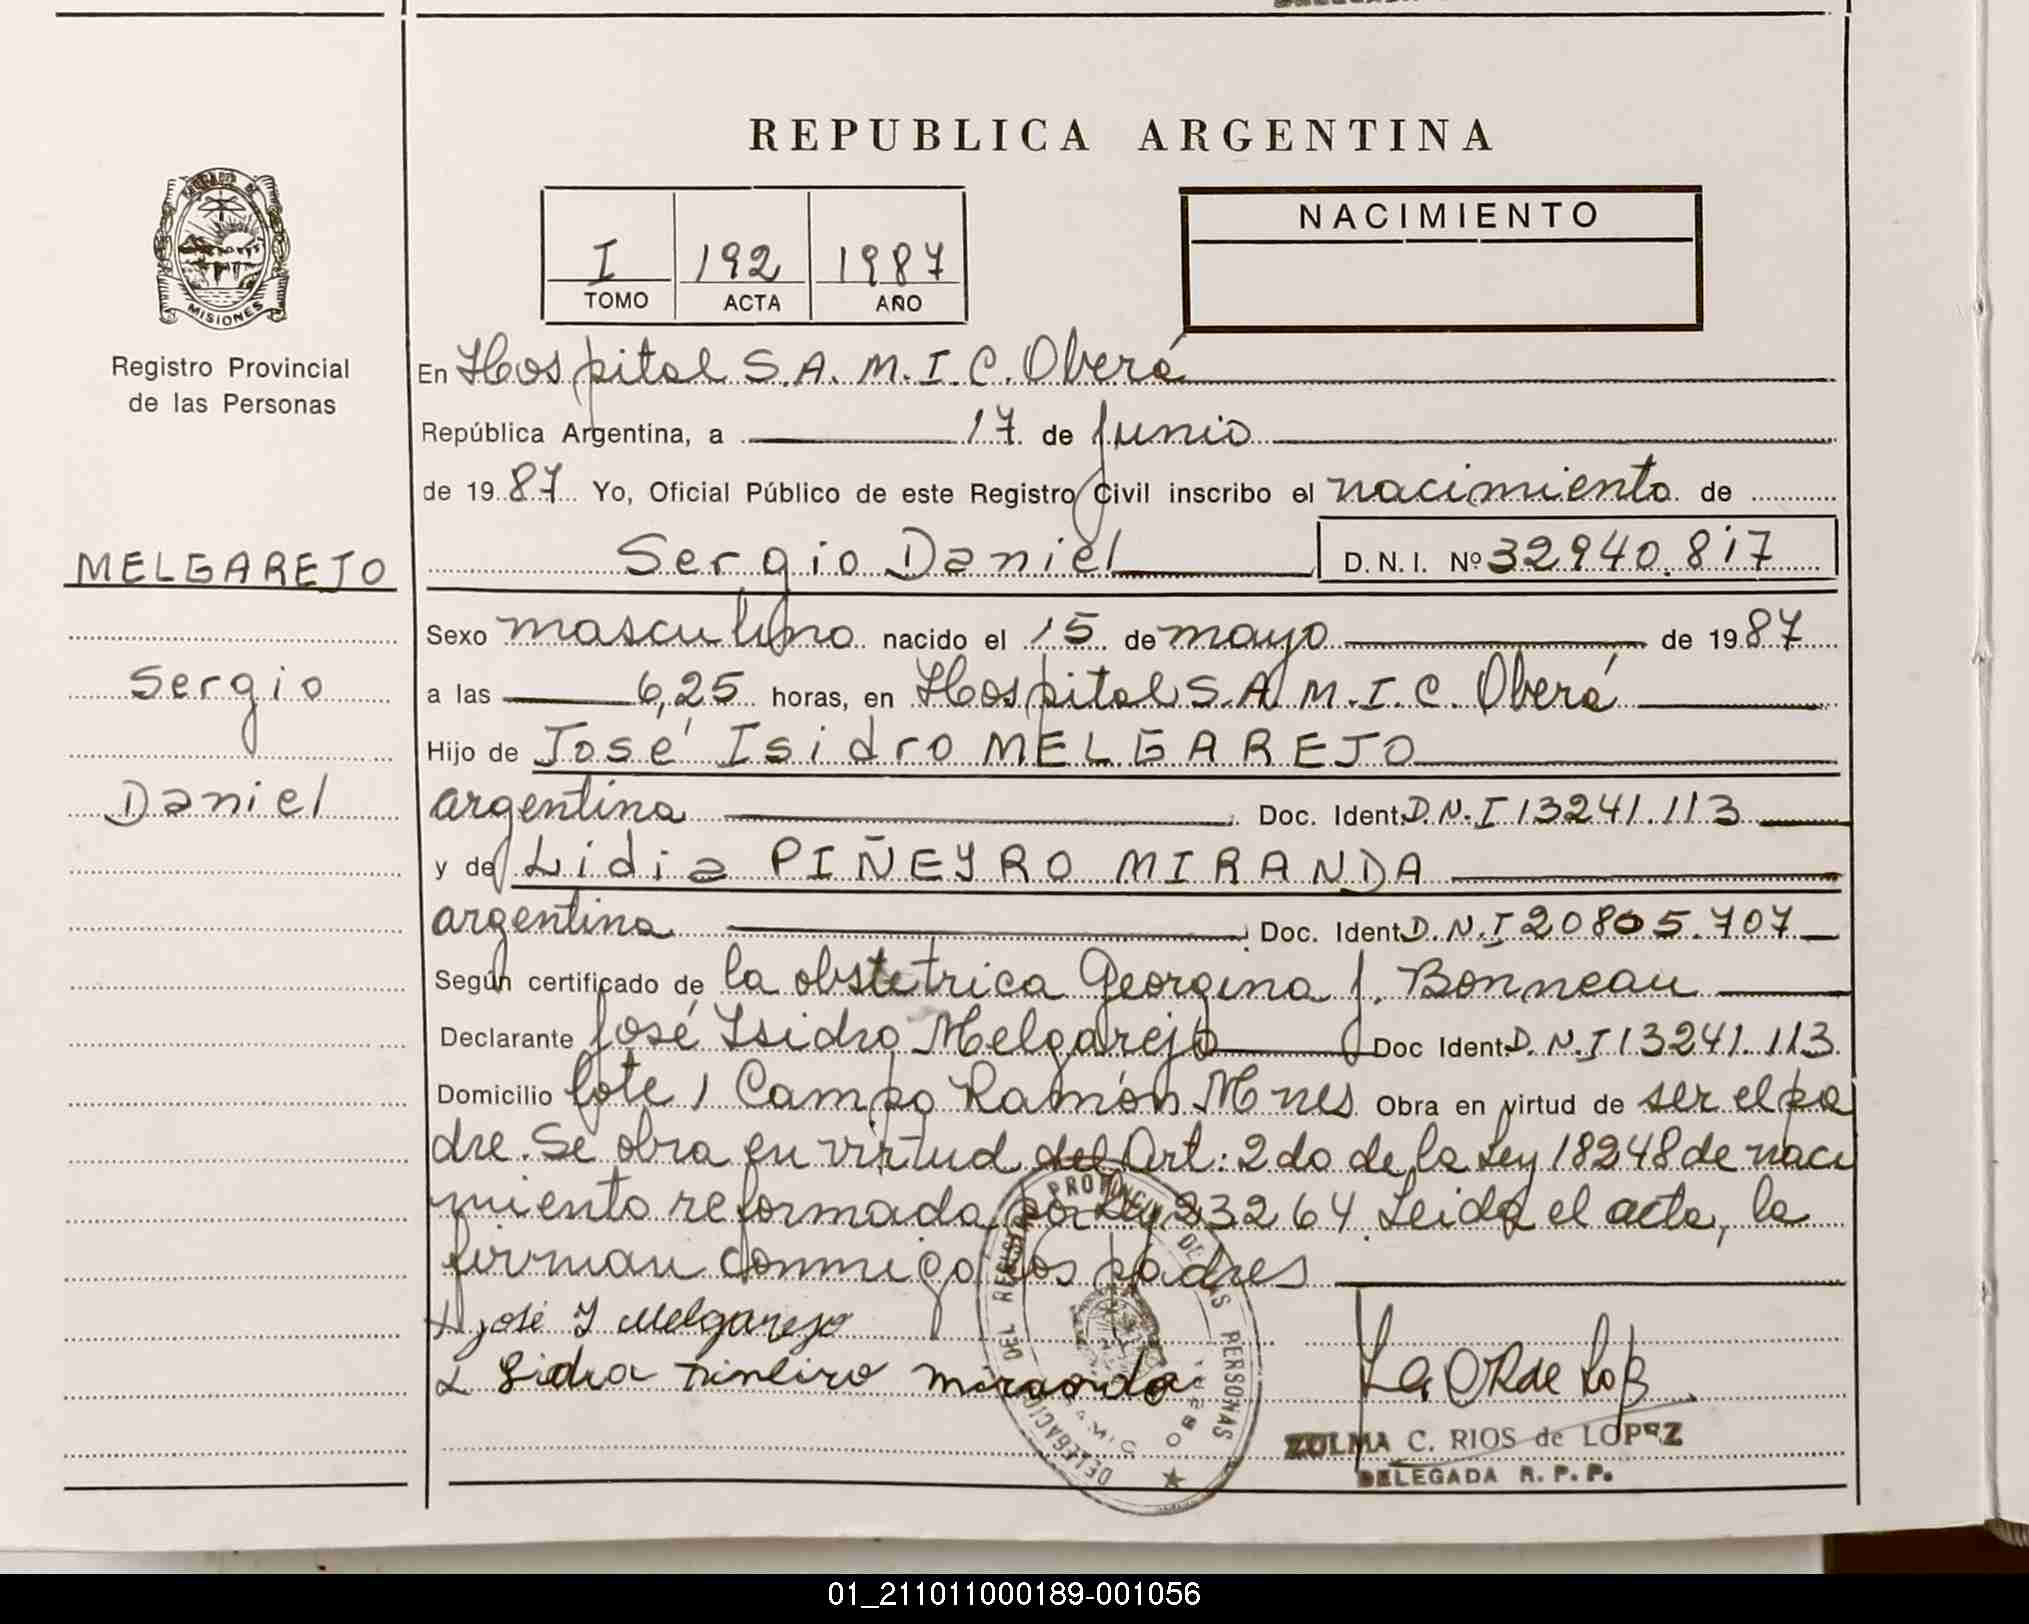 REPUBLICA ARGENTINA
NACIMIENTO
I 192 1987
TOMO ACTA AÑO
MISIONES
Registro Provincial
de las Personas
MELGAREJO
Sergio
Daniel
En Hospital S.A.M.I.C. Oberá
República Argentina, a 17 de Junio
de 1987 Yo, Oficial Público de este Registro Civil inscribo el nacimiento de
Sergio Daniel D.N.I. Nº 32940.817
Sexo masculino nacido el 15 de mayo de 1987
a las 6,25 horas, en Hospital S.A.M.I.C. Oberá
Hijo de José Isidro MELGAREJO
argentina Doc. Ident. D.N.I 13241.113
y de Lidia PIÑEYRO MIRANDA
argentina Doc. Ident D.N.I 20805.707
Según certificado de la obstetrica Georgina J. Bonneau
Declarante José Isidro Melgarejo Doc Ident. D.N.I 13241.113
Domicilio lote 1 Campo Ramón Mnes Obra en virtud de ser el pa
dre. Se obra en virtud del Art: 2do de la Ley 18248 de naci
miento reformada por Ley 23264. Leida el acta, la
firman conmigo los padres
José I Melgarejo
Lidia Piñeiro Miranda
ZULMA C. RIOS de LOPEZ
DELEGADA R.P.P.
DELEGACION DEL REGISTRO PROVINCIAL DE LAS PERSONAS
01_211011000189-001056